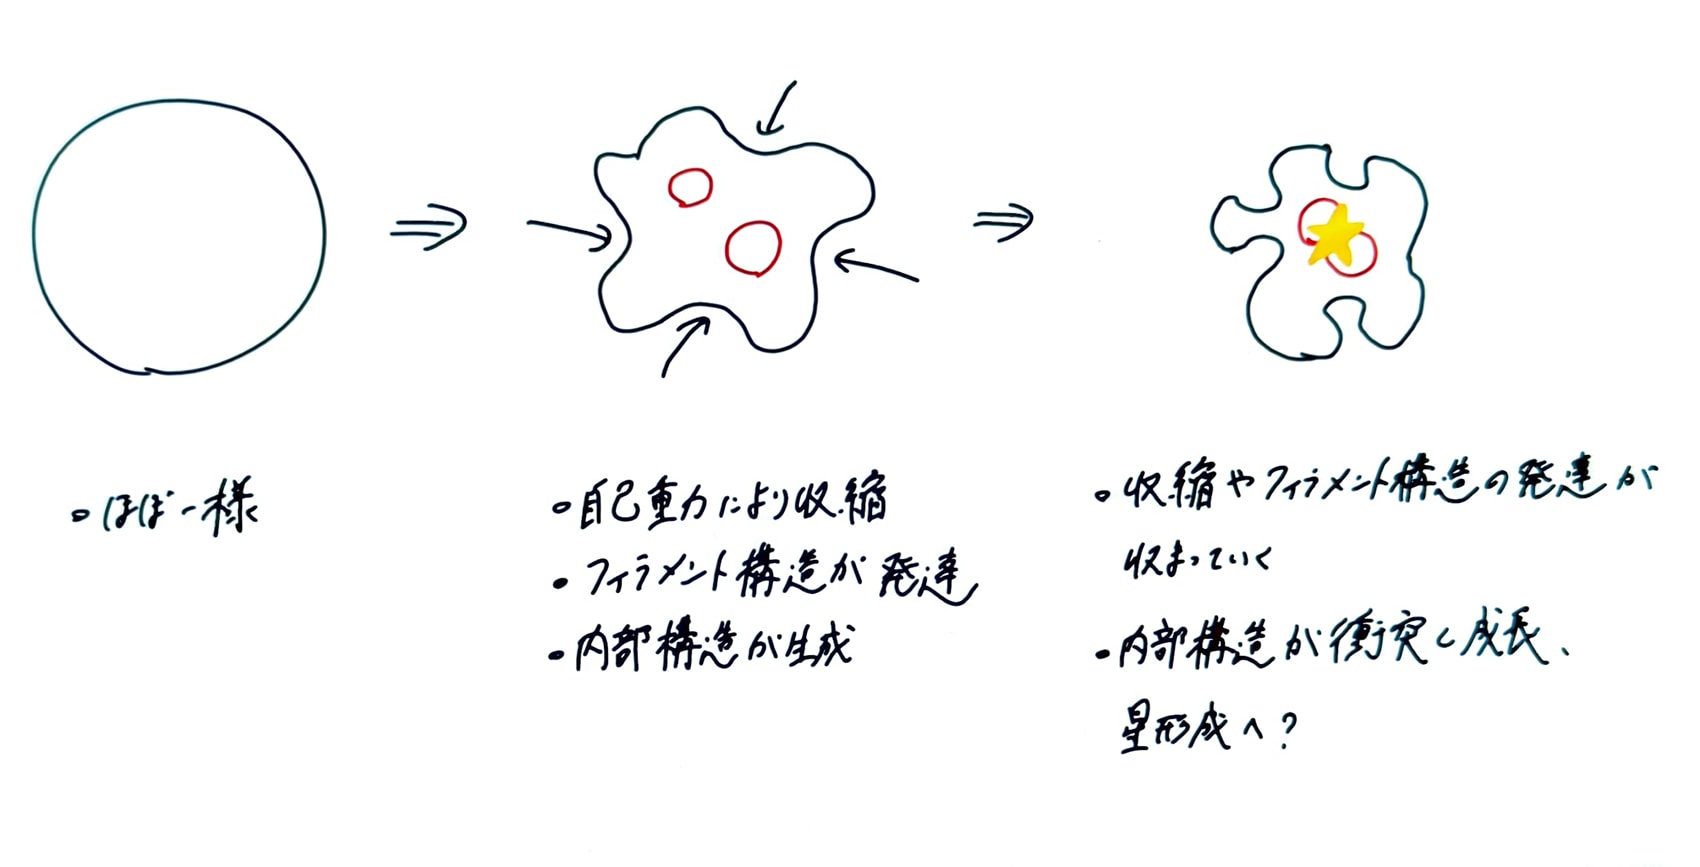 ・ほぼ一様
・自己重力により収縮
・フィラメント構造が発達
・内部構造が生成
・収縮やフィラメント構造の発達が
収まっていく
・内部構造が衝突し成長、
星形成へ?